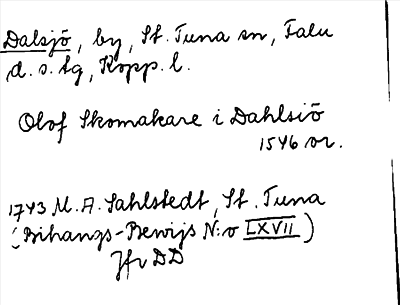 Dalsjö, by, St. Tuna sn, Falu
d. s. tg, Kopp. l.
Olof Skomakare i Dahlsiö
1546 or.
1743 M. A. Sahlstedt, St. Tuna
(Bihangs-Bewijs N:o LXVII)
Jfr DD